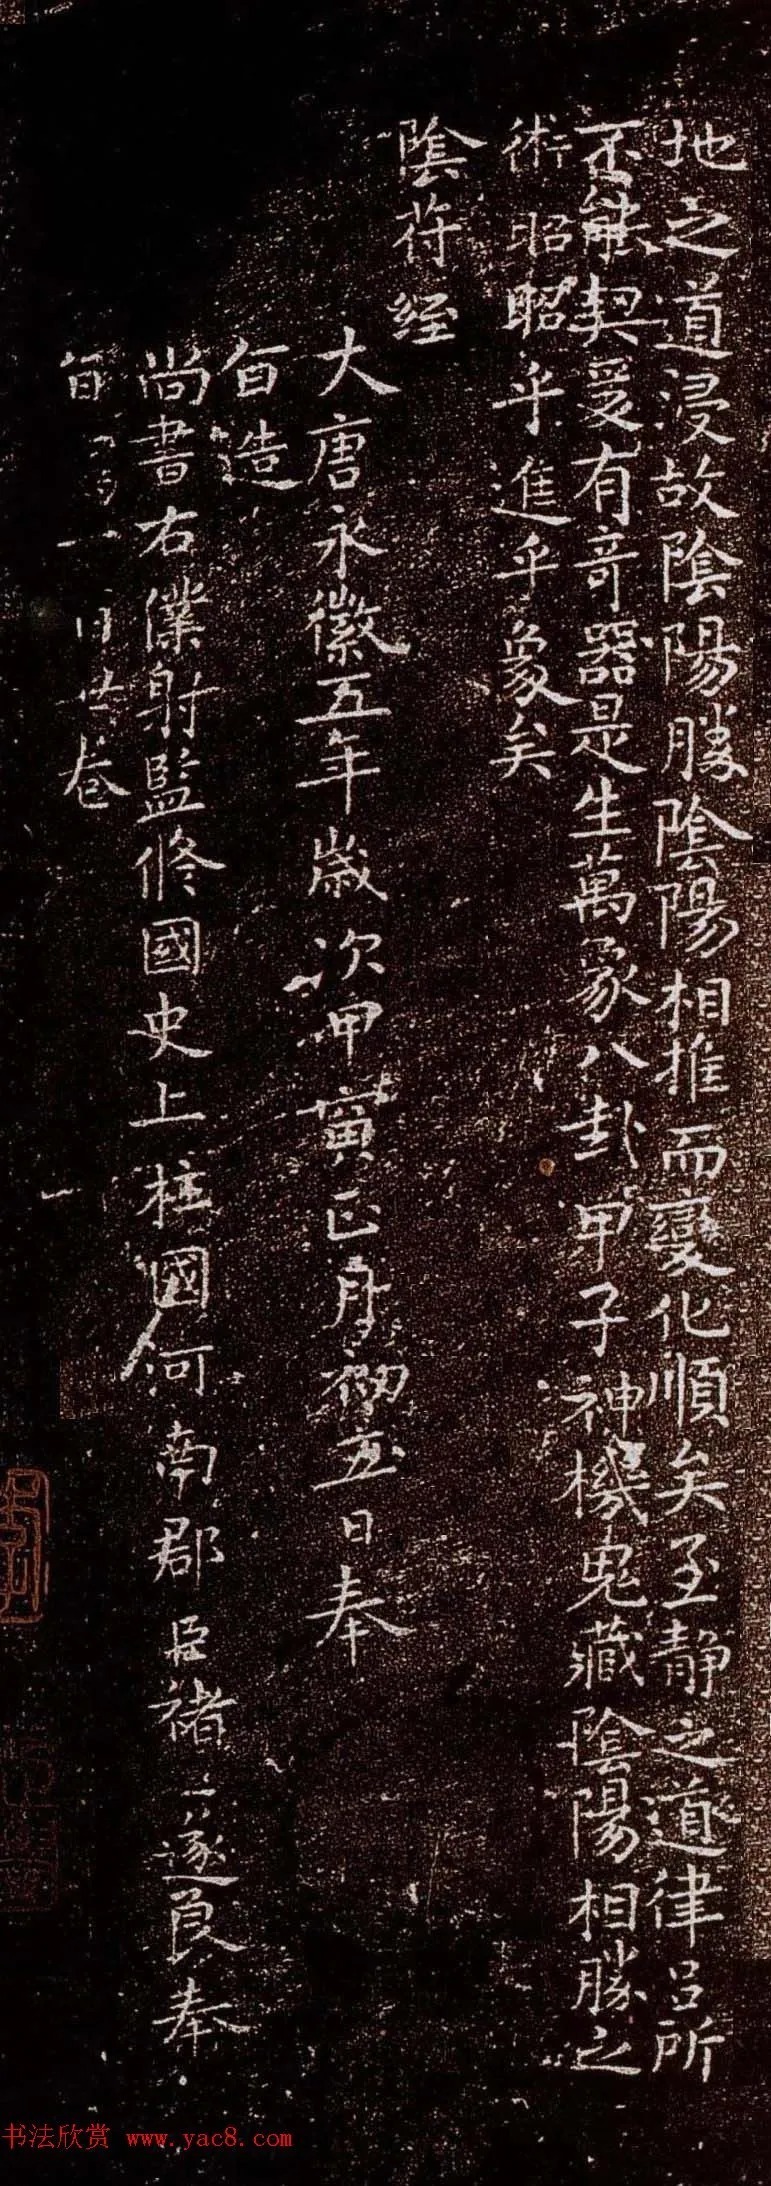 地之道浸故陰陽勝陰陽相推而變化順矣至靜之道律呂所
不能契爰有奇器是生萬象八卦甲子神機鬼藏陰陽相勝之
術昭昭乎進乎象矣
陰苻經
大唐永徽五年歲次甲寅正月初五日奉
旨造
尚書右僕射監修國史上柱國河南郡臣褚遂良奉
旨 一百 卷
书法欣赏 www.yac8.com